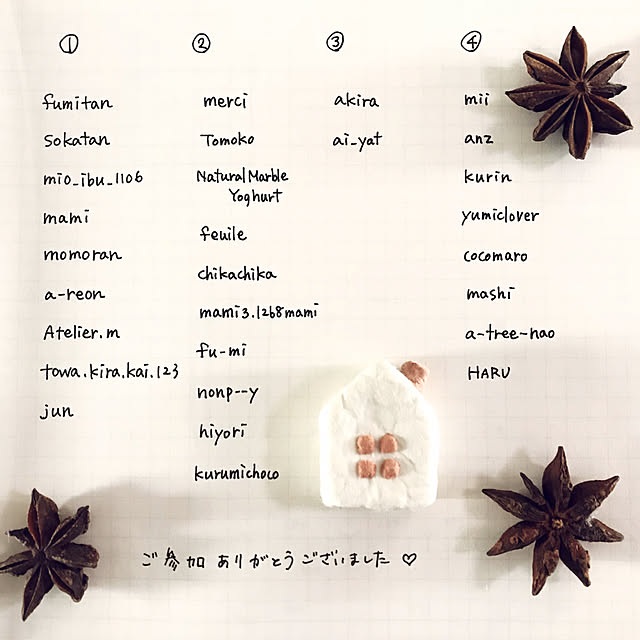 ①
fumitan
Sokatan
mio_ibu_1106
mami
momoran
a-reon
Atelier.m
towa.kira.kai.123
jun
②
merci
Tomoko
Natural Marble
Yoghurt
feuile
chikachika
mami3.1268mami
fu-mi
nonp--y
hiyori
kurumichoco
③
akira
ai_yat
④
mii
anz
kurin
yumiclover
cocomaro
mashi
a-tree-nao
HARU
ご参加ありがとうございました♡